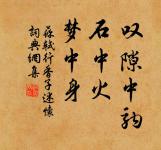 叹隙中驹
石中火
梦中身
苏轼行香子述怀
词典网集